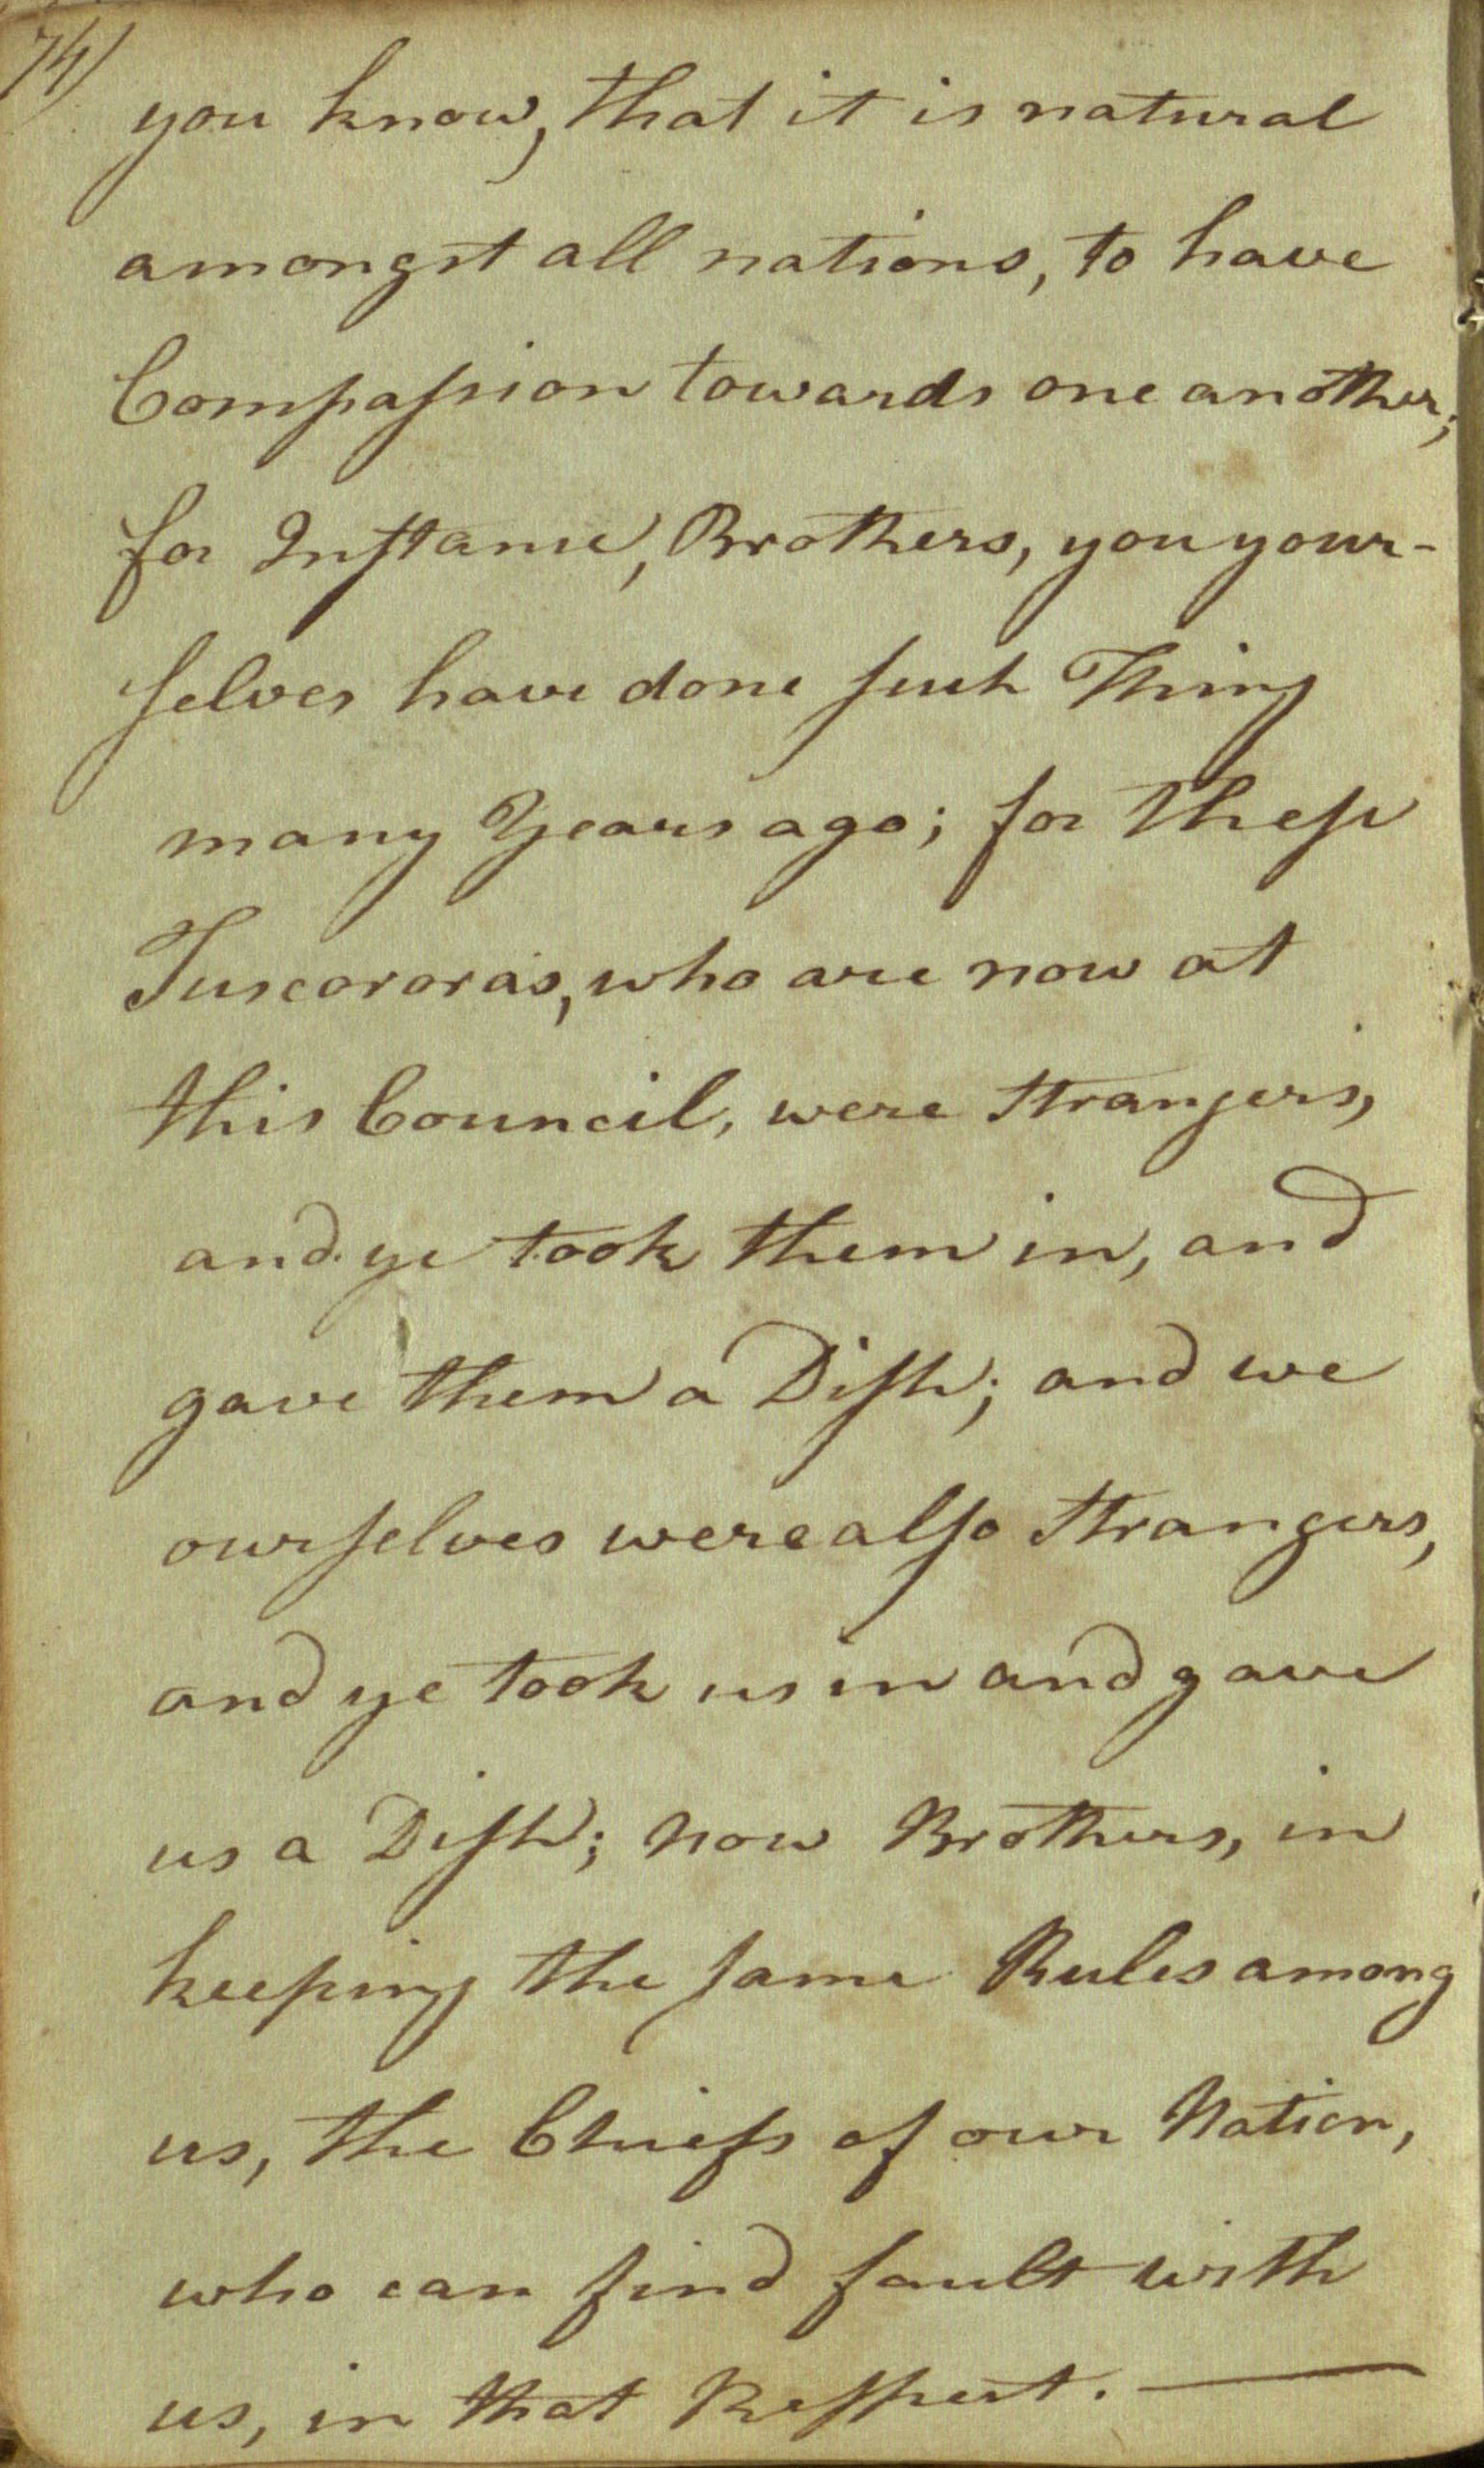 74)
you know, that it is natural
amongst all nations, to have
Compaſsion towards one another;
for Inſtance, Brothers, you your-
ſelves have done ſuch Thing
many Years ago; for theſe
Tuscororas, who are now at
this Council, were Strangers,
and ye took them in, and
gave them a Diſh; and we
ourſelves were alſo Strangers,
and ye took us in and gave
us a Diſh; now Brothers, in
keeping the ſame Rules among
us, the Chiefs of our Nation,
who can find fault with
us, in that Reſpect. —